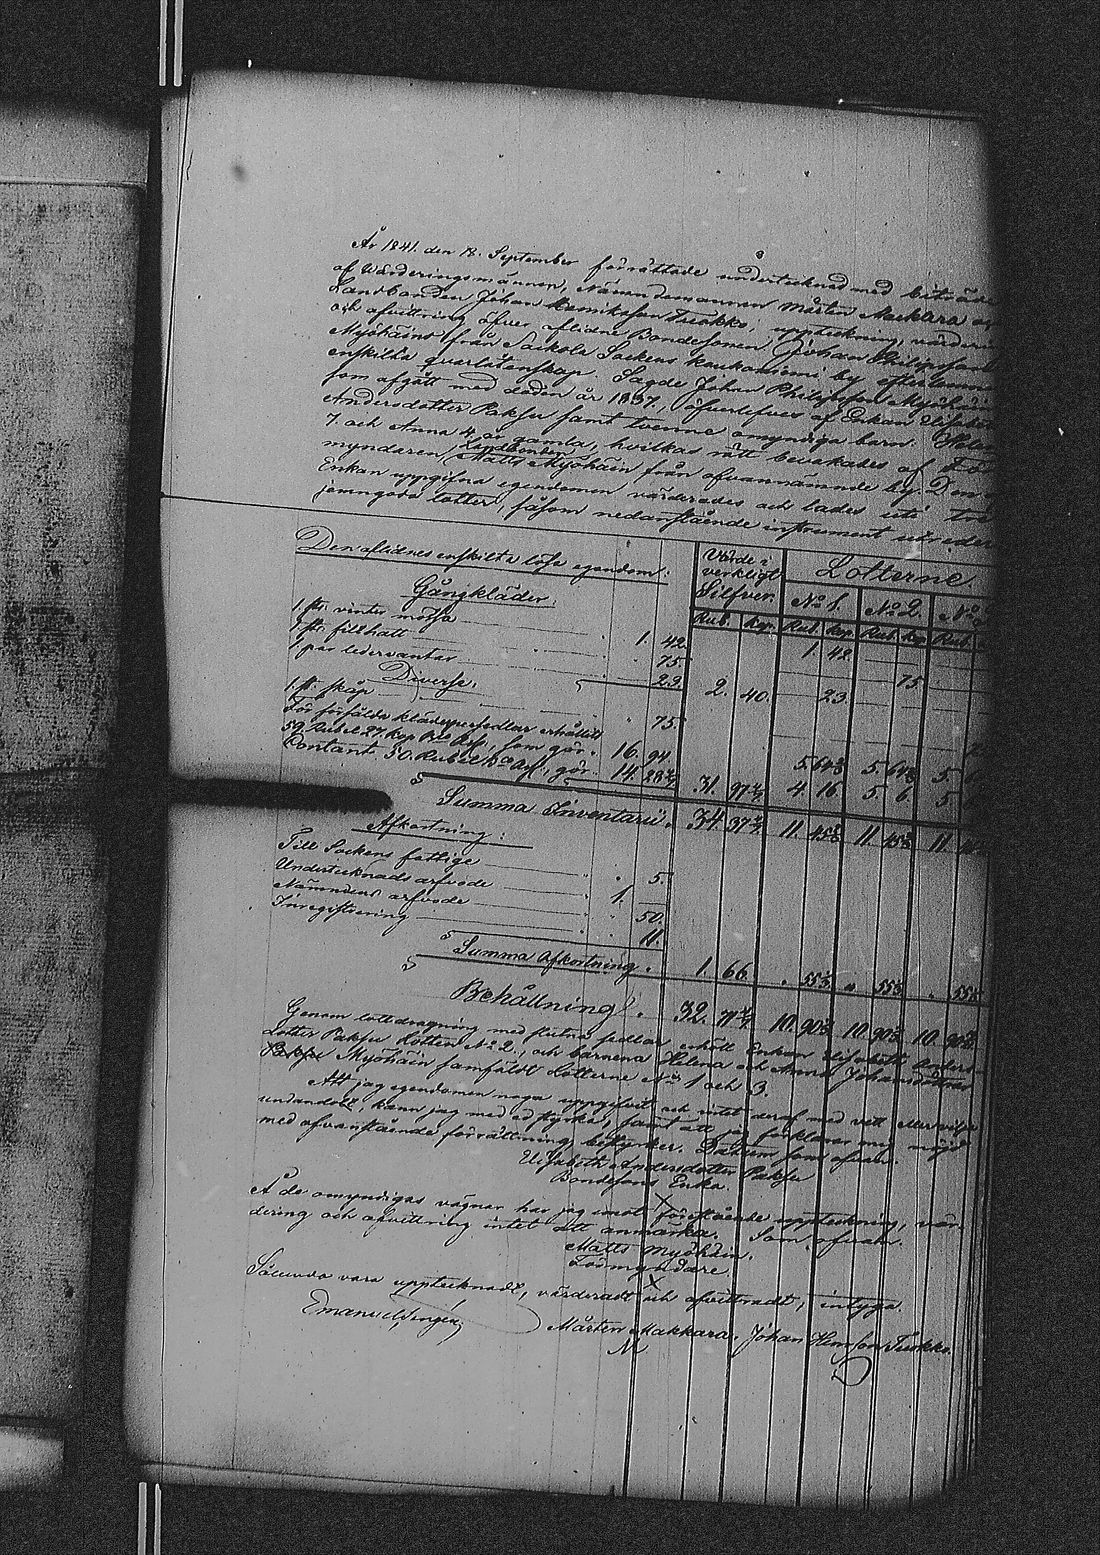 År 1841. den 18. September förrättade undertecknad med biträde
af Wärderingsmännen, Nämndemannen Mårten Makkara och
Landbonden Johan Henriksson Tuokko, uppteckning, värdering
och afvittring öfver aflidne Bondesonen Johan Philipsson
Myöhäins från Sackola Sockens Haukaniemi by efterlemnade
enskilta qvarlåtenskap. Sagde Johan Philipsson Myöhäin
som afgått med döden år 1837, öfverlefves af Enkan Elisabeth
Andersdotter Paksu samt tvenne omyndiga barn: Helena
7. och Anna 4 år gamla, hvilkas rätt bevakades af För
myndaren, Landbonden Matts Myöhäin från ofvannämnde by. Den af
Enkan uppgifna egendomen värderades och lades uti tre
jemngoda lotter, såsom nedanstående instrument utvisar
Den aflidnes enskilta lösa egendom:
Värde i verkligt Silfver. Lotterne
Gångkläder. No 1. No 2. No 3
Rub. Kop. Rub. Kop. Rub. Kop. Rub.
1 st. vinter mössa 1. 42. 1. 42
1 st. filthatt 75. 75
1 par ledervantar 23. 2. 40. 23.
Diverse.
1 st. skåp 75.
För försålda klädespersedlar erhållit
59. Rubel 27. Kop. Bco Ass. som gör. 16. 94 5. 64 5. 64 5.
Contant. 50. Rubel Bco Ass., gör 14. 28 4/7 31. 97 4/7 4. 16. 5. 6. 5.
Summa Inventarii. 34. 37 4/7 11. 45 11. 45 11.
Afkortning:
Till Sockens fattige 5.
Undertecknads arfvode 1.
Nämndens arfvode 50.
Inregistrering 11.
Summa Afkortning. 1. 66. 55 1/3 55 1/3 55 1/3
Behållning. 32. 71 4/7 10. 90 10. 90 10. 90
Genom lottdragning med slutna sedlar erhöll Enkan Elisabeth Anders-
dotter Paksu Lotten No 2., och barnena Helena och Anna Johansdöttrar
Myöhäin samfäldt Lotterne No 1 och 3.
Att jag egendomen noga uppgifvit och intet deraf med vett eller vilja
undandolt, kann jag med ed styrka; samt att jag förklarar mig nöjd
med ofvanstående förrättning bestyrker. Datum som ofvan.
Elisabeth Andersdotter Paksu
Bondesons Enka.
X
Å de omyndigas vägnar har jag imot föreståënde uppteckning, vär-
dering och afvittring intet att anmärka. Som ofvan.
Matts Myöhäin.
Förmyndare.
X
Sålunda vara upptecknadt, värderadt och afvittradt, intyga.
Emanuel
Mårten Makkara. Johan Hensson Tuokko.
M